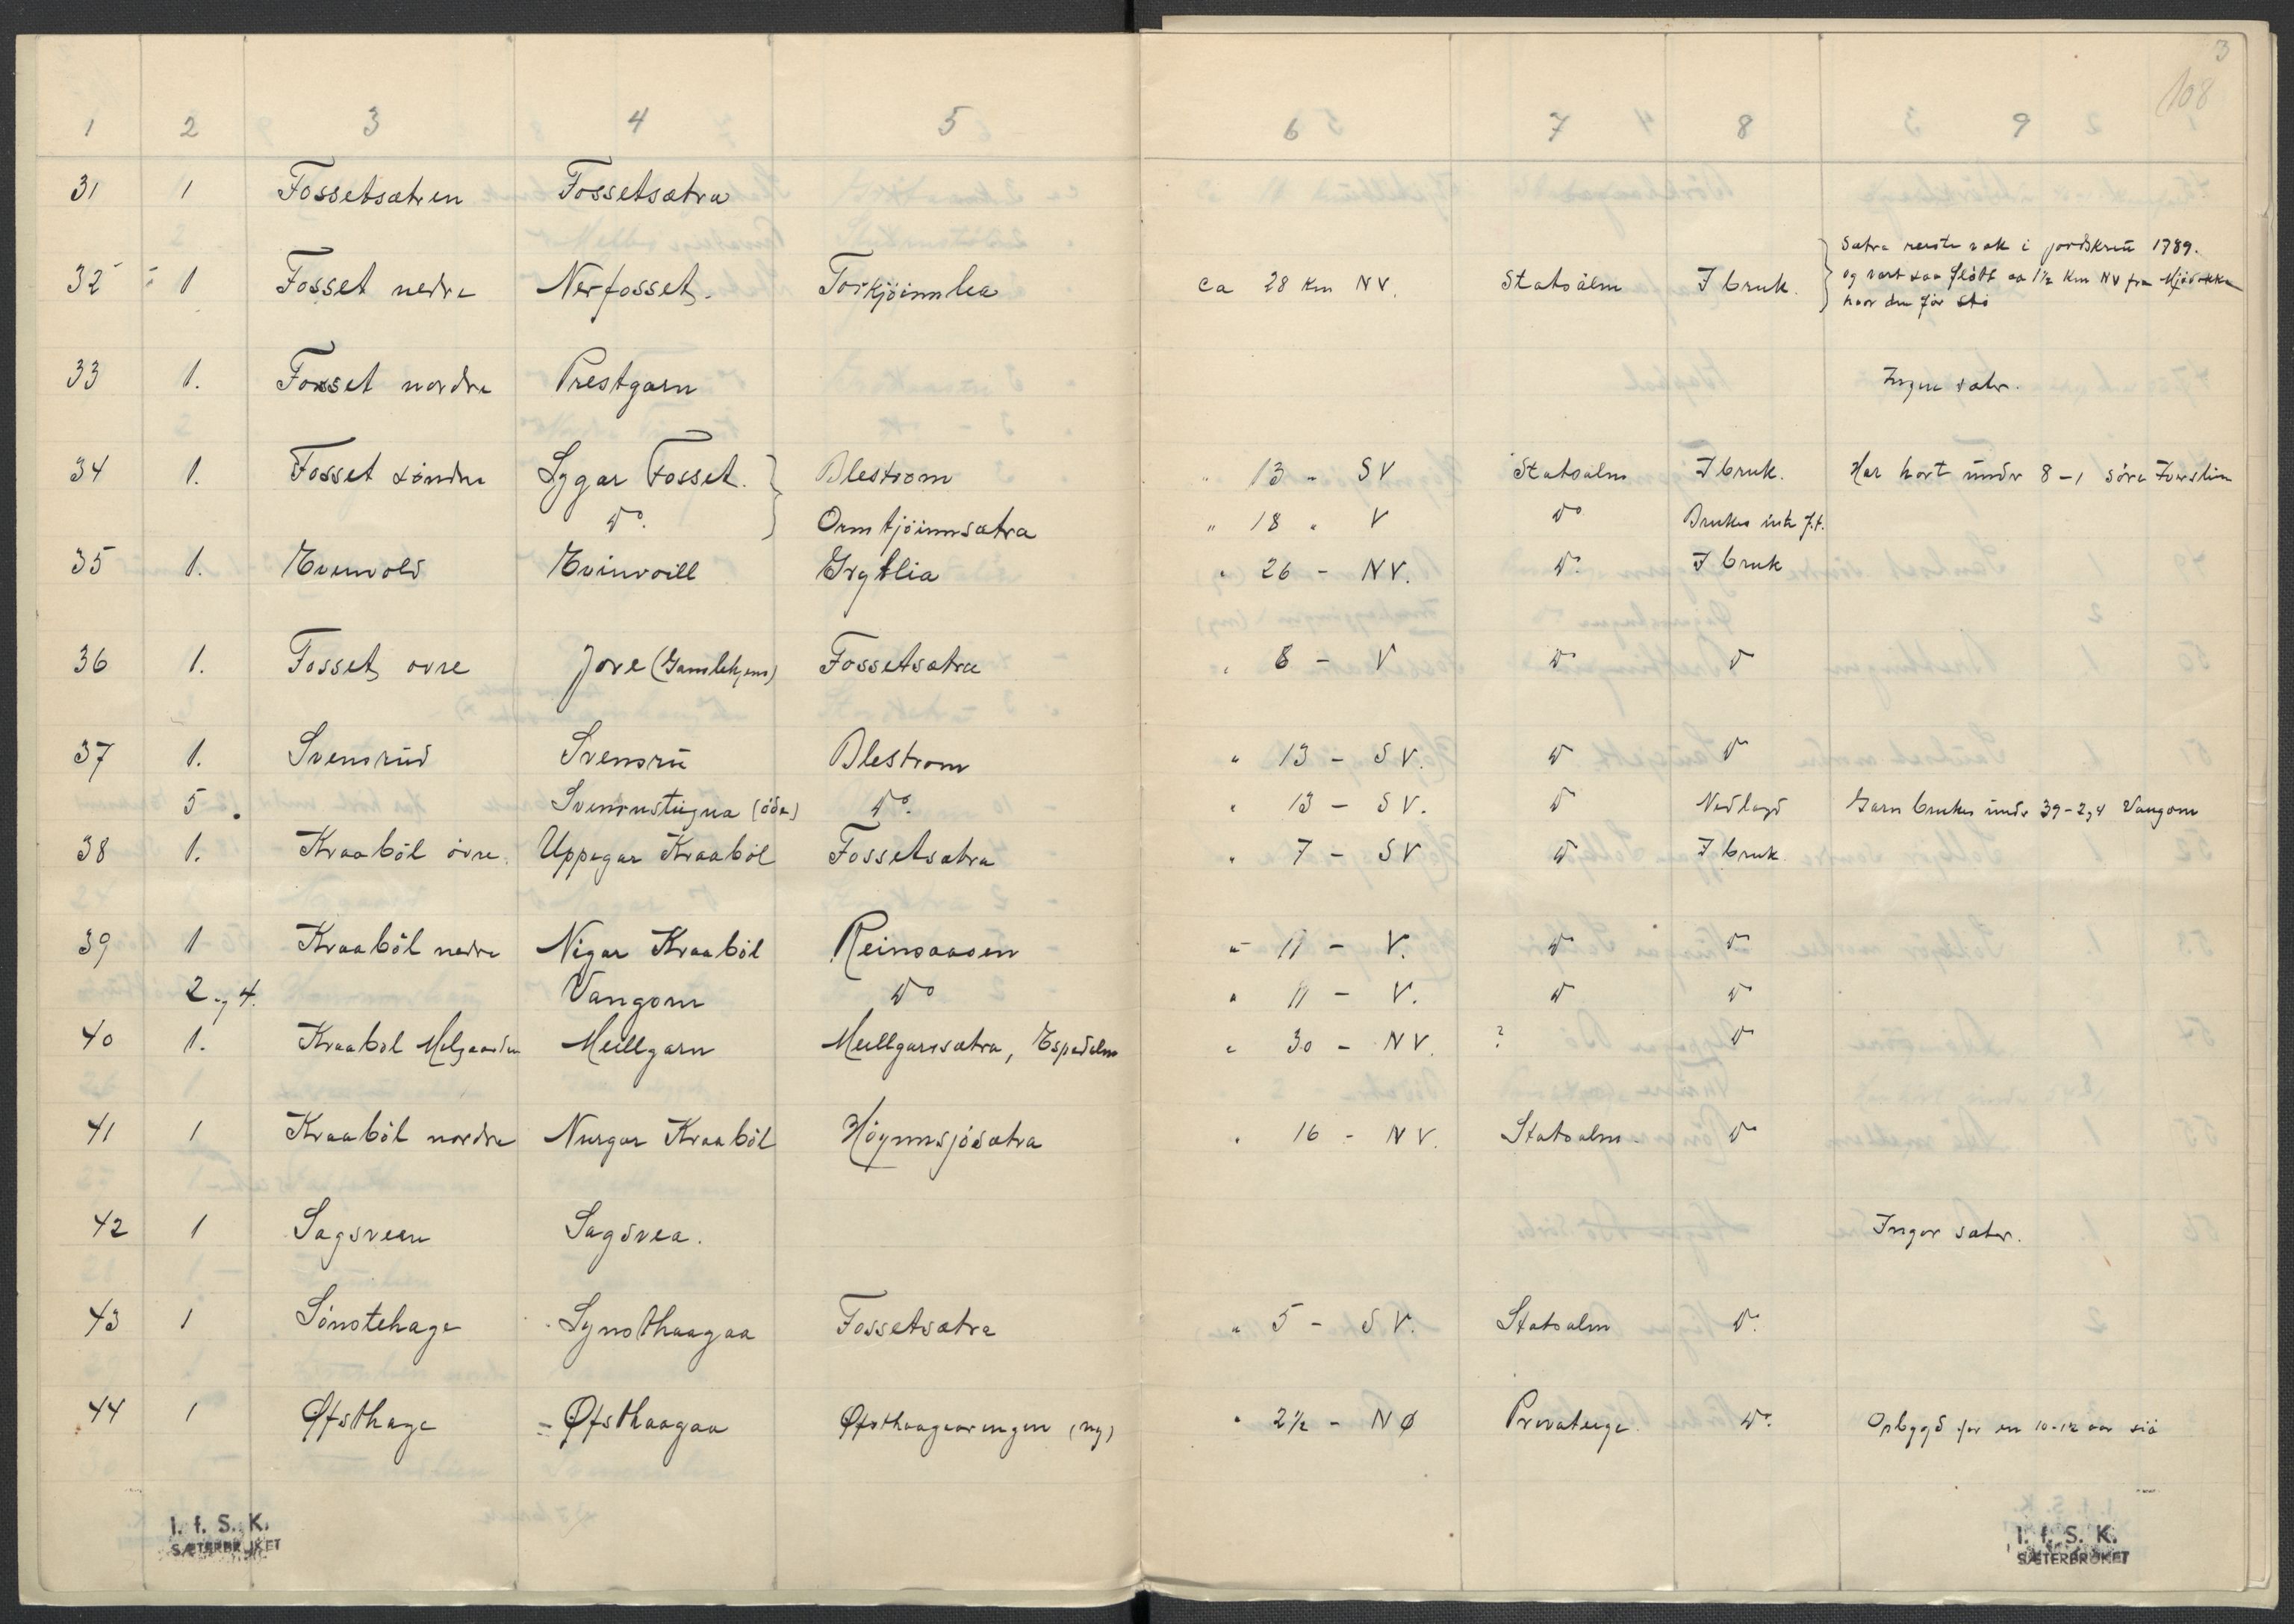 3
108
1 2 3 4 5 6 7 8 9
31 1 Fossetsætren Fossetsætra
Sætra reiste væk i jordskreü 1789.
32 1 Fosset nedre Nerfosset Torkjöinnlia ca 28 Km NV. Statsålm I bruk. og vart saa flött ca 1½ Km NV fra
hvor den för sto
33 1. Fosset nordre Prestgarn Ingen sæter.
34 1. Fosset söndre Sygar Fosset. Blestrom " 13 - SV Statsalm I bruk. Har hört under 8-1 söre
Do. Ormtjöinnsætra " 18 " V Do Brukes inte f.t.
35 1. Evenvold Evinvoill Grytlia " 26 - NV. Do I bruk
36 1. Fosset övre Jore (Gamlehjem) Fossetsætra " 8 - V Do Do
37 1. Svensrud Svensrü Blestrom " 13 - SV. Do Do
5. Svensrustügua (öde) Do. " 13 - SV. Do Nedlagd Garn brukes under 39-2,4 Vangom
38 1. Kraaböl övre. Uppegar Kraaböl Fossetsætra " 7 - SV Do I bruk
39 1 Kraaböl nedre Nigar Kraaböl Reinsaasen " 11 - V. Do Do
2 og 4. Vangom Do " 11 - V. Do Do
40 1. Kraaböl Melgaarden Meillgarn Meillgarssætra, Espedalen " 30 - NV. ? Do
41 1 Kraaböl nordre Nurgar Kraaböl Höynnsjösætra " 16 - NV. Statsalm. Do
42 1 Sagsveen Sagsvea. Ingen sæter.
43 1 Sönstehage Synsthaagaa Fossetsætra " 5 - SV. Statsalm Do.
44 1 Øfsthage = Øfsthaagaa Øfsthaagaavengen (ny) " 2½ - NØ Privateige. Do. Opbygd for en 10-12 aar sia
I. f. S. K.
SÆTERBRUKET
I. f. S. K.
SÆTERBRUKET